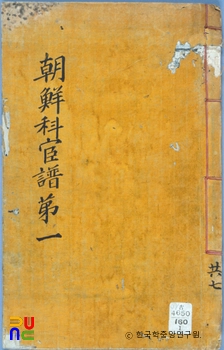 朝鮮科宦譜第一
共七
A
4650
160
1
© 한국학중앙연구원